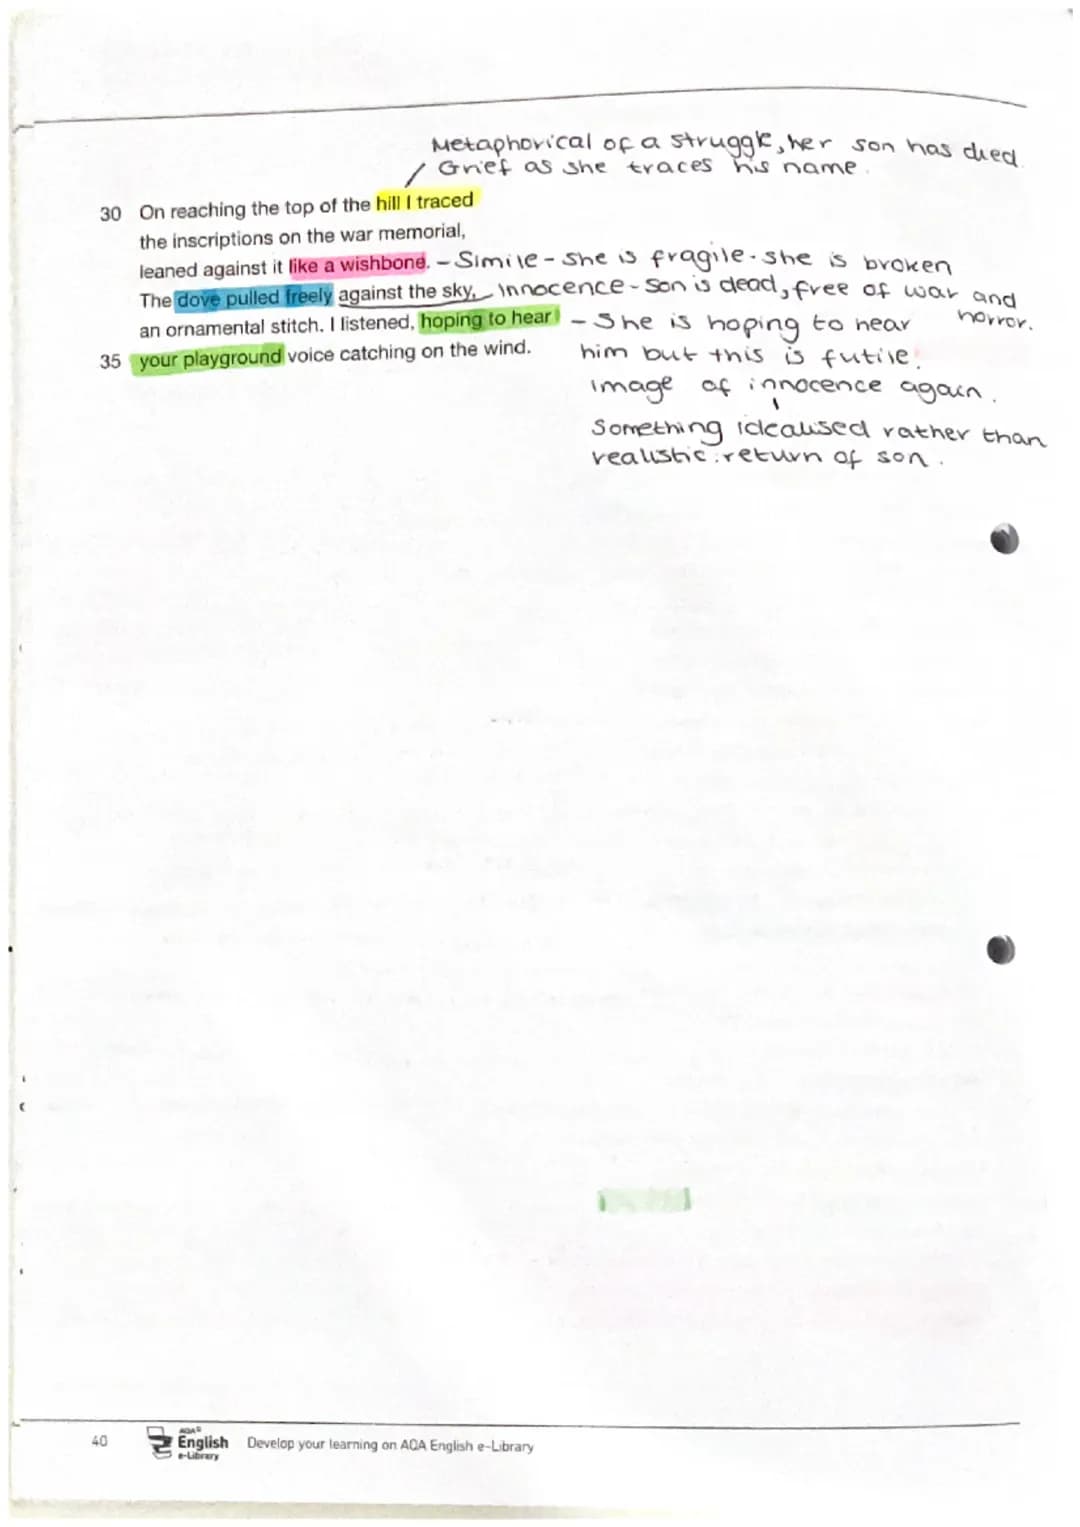 Metaphorical of a struggle, her son has died.
Grief as she traces his name.
30 On reaching the top of the hill I traced
the inscriptions on the war memorial,
leaned against it like a wishbone. - Simile - she is fragile. she is broken
The dove pulled freely against the sky, Innocence - son is dead, free of war and horror.
an ornamental stitch. I listened, hoping to hear - She is hoping to hear
35 your playground voice catching on the wind. him but this is futile.
image of innocence again.
Something idealised rather than
realistic: return of son.
40 AQA English e-Library Develop your learning on AQA English e-Library